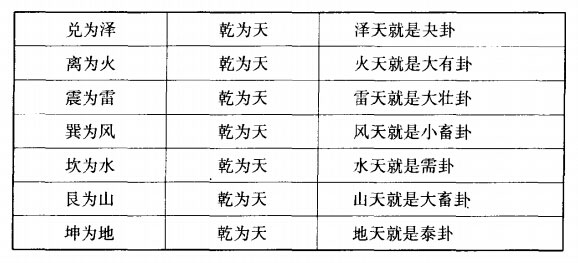 兑为泽 乾为天 泽天就是夬卦
离为火 乾为天 火天就是大有卦
震为雷 乾为天 雷天就是大壮卦
巽为风 乾为天 风天就是小畜卦
坎为水 乾为天 水天就是需卦
艮为山 乾为天 山天就是大畜卦
坤为地 乾为天 地天就是泰卦